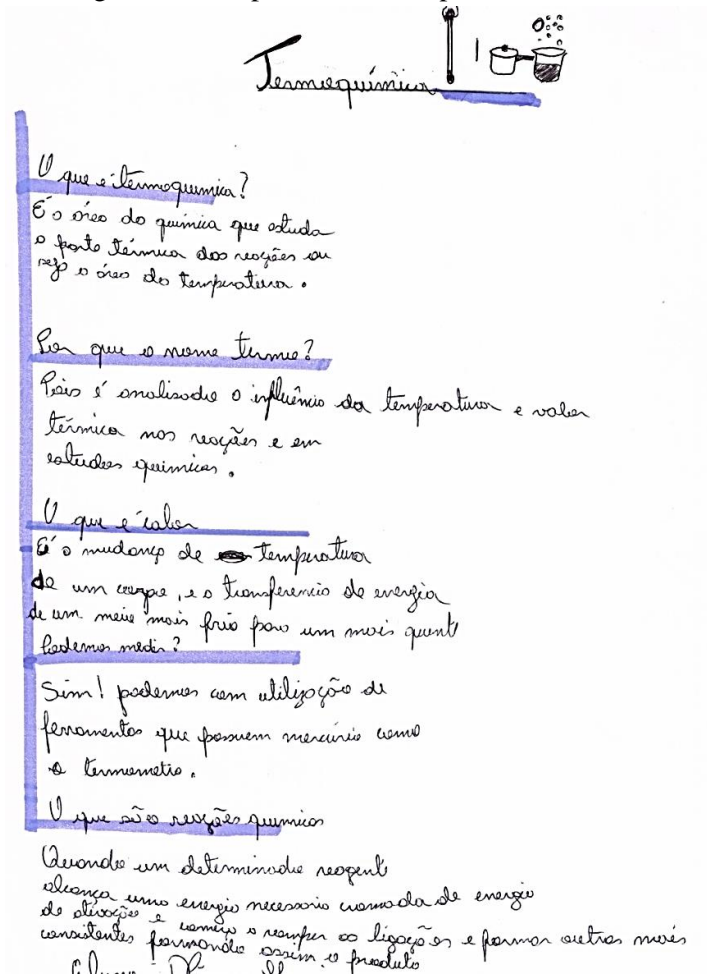 Termoquímica
O que é termoquimica?
É a área da química que estuda
a parte térmica das reações ou
seja a área da temperatura.
Por que o nome termo?
Pois é analisado a influência da temperatura e valor
térmica nas reações e em
estudos quimicos.
O que é calor
É a mudança de temperatura
de um corpo, e a transferencia de energia
de um meio mais frio para um mais quent
Podemos medir?
Sim! podemos com utilização de
ferramentas que possuem mercúrio como
o termometro.
O que são reações quimicas
Quando um determinado reagent
alcança uma energia necessaria de energia
de ativação e começa a romper as ligações e formar outras mais
consistentes formando assim o produto